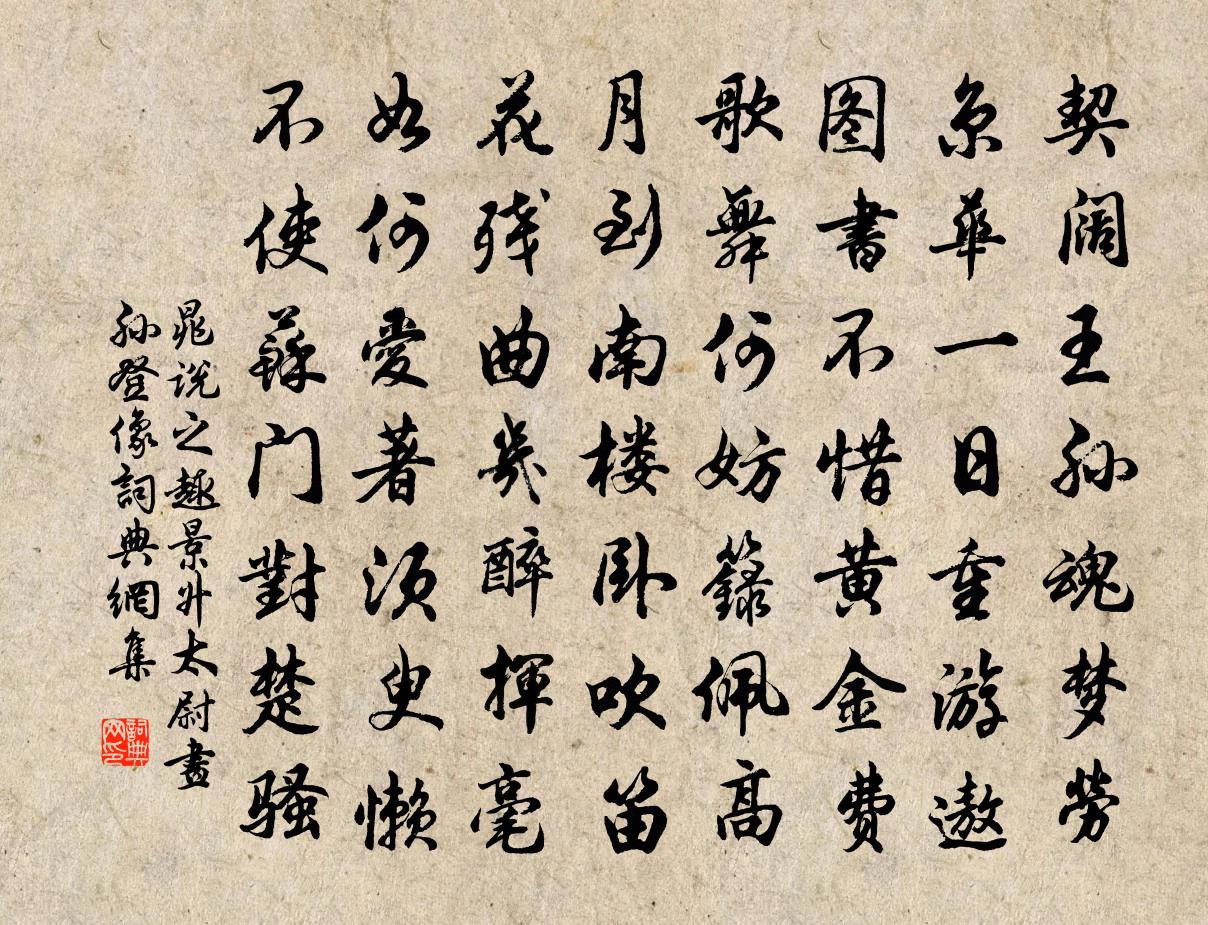 契阔王孙魂梦劳
京华一日重游遨
图書不惜黄金费
歌舞何妨籙佩高
月到南楼卧吹笛
花残曲几醉揮毫
如何愛著须臾懒
不使蘇门對楚骚
晁说之趣景外太尉畫
孙登像詞典網集
詞典网印